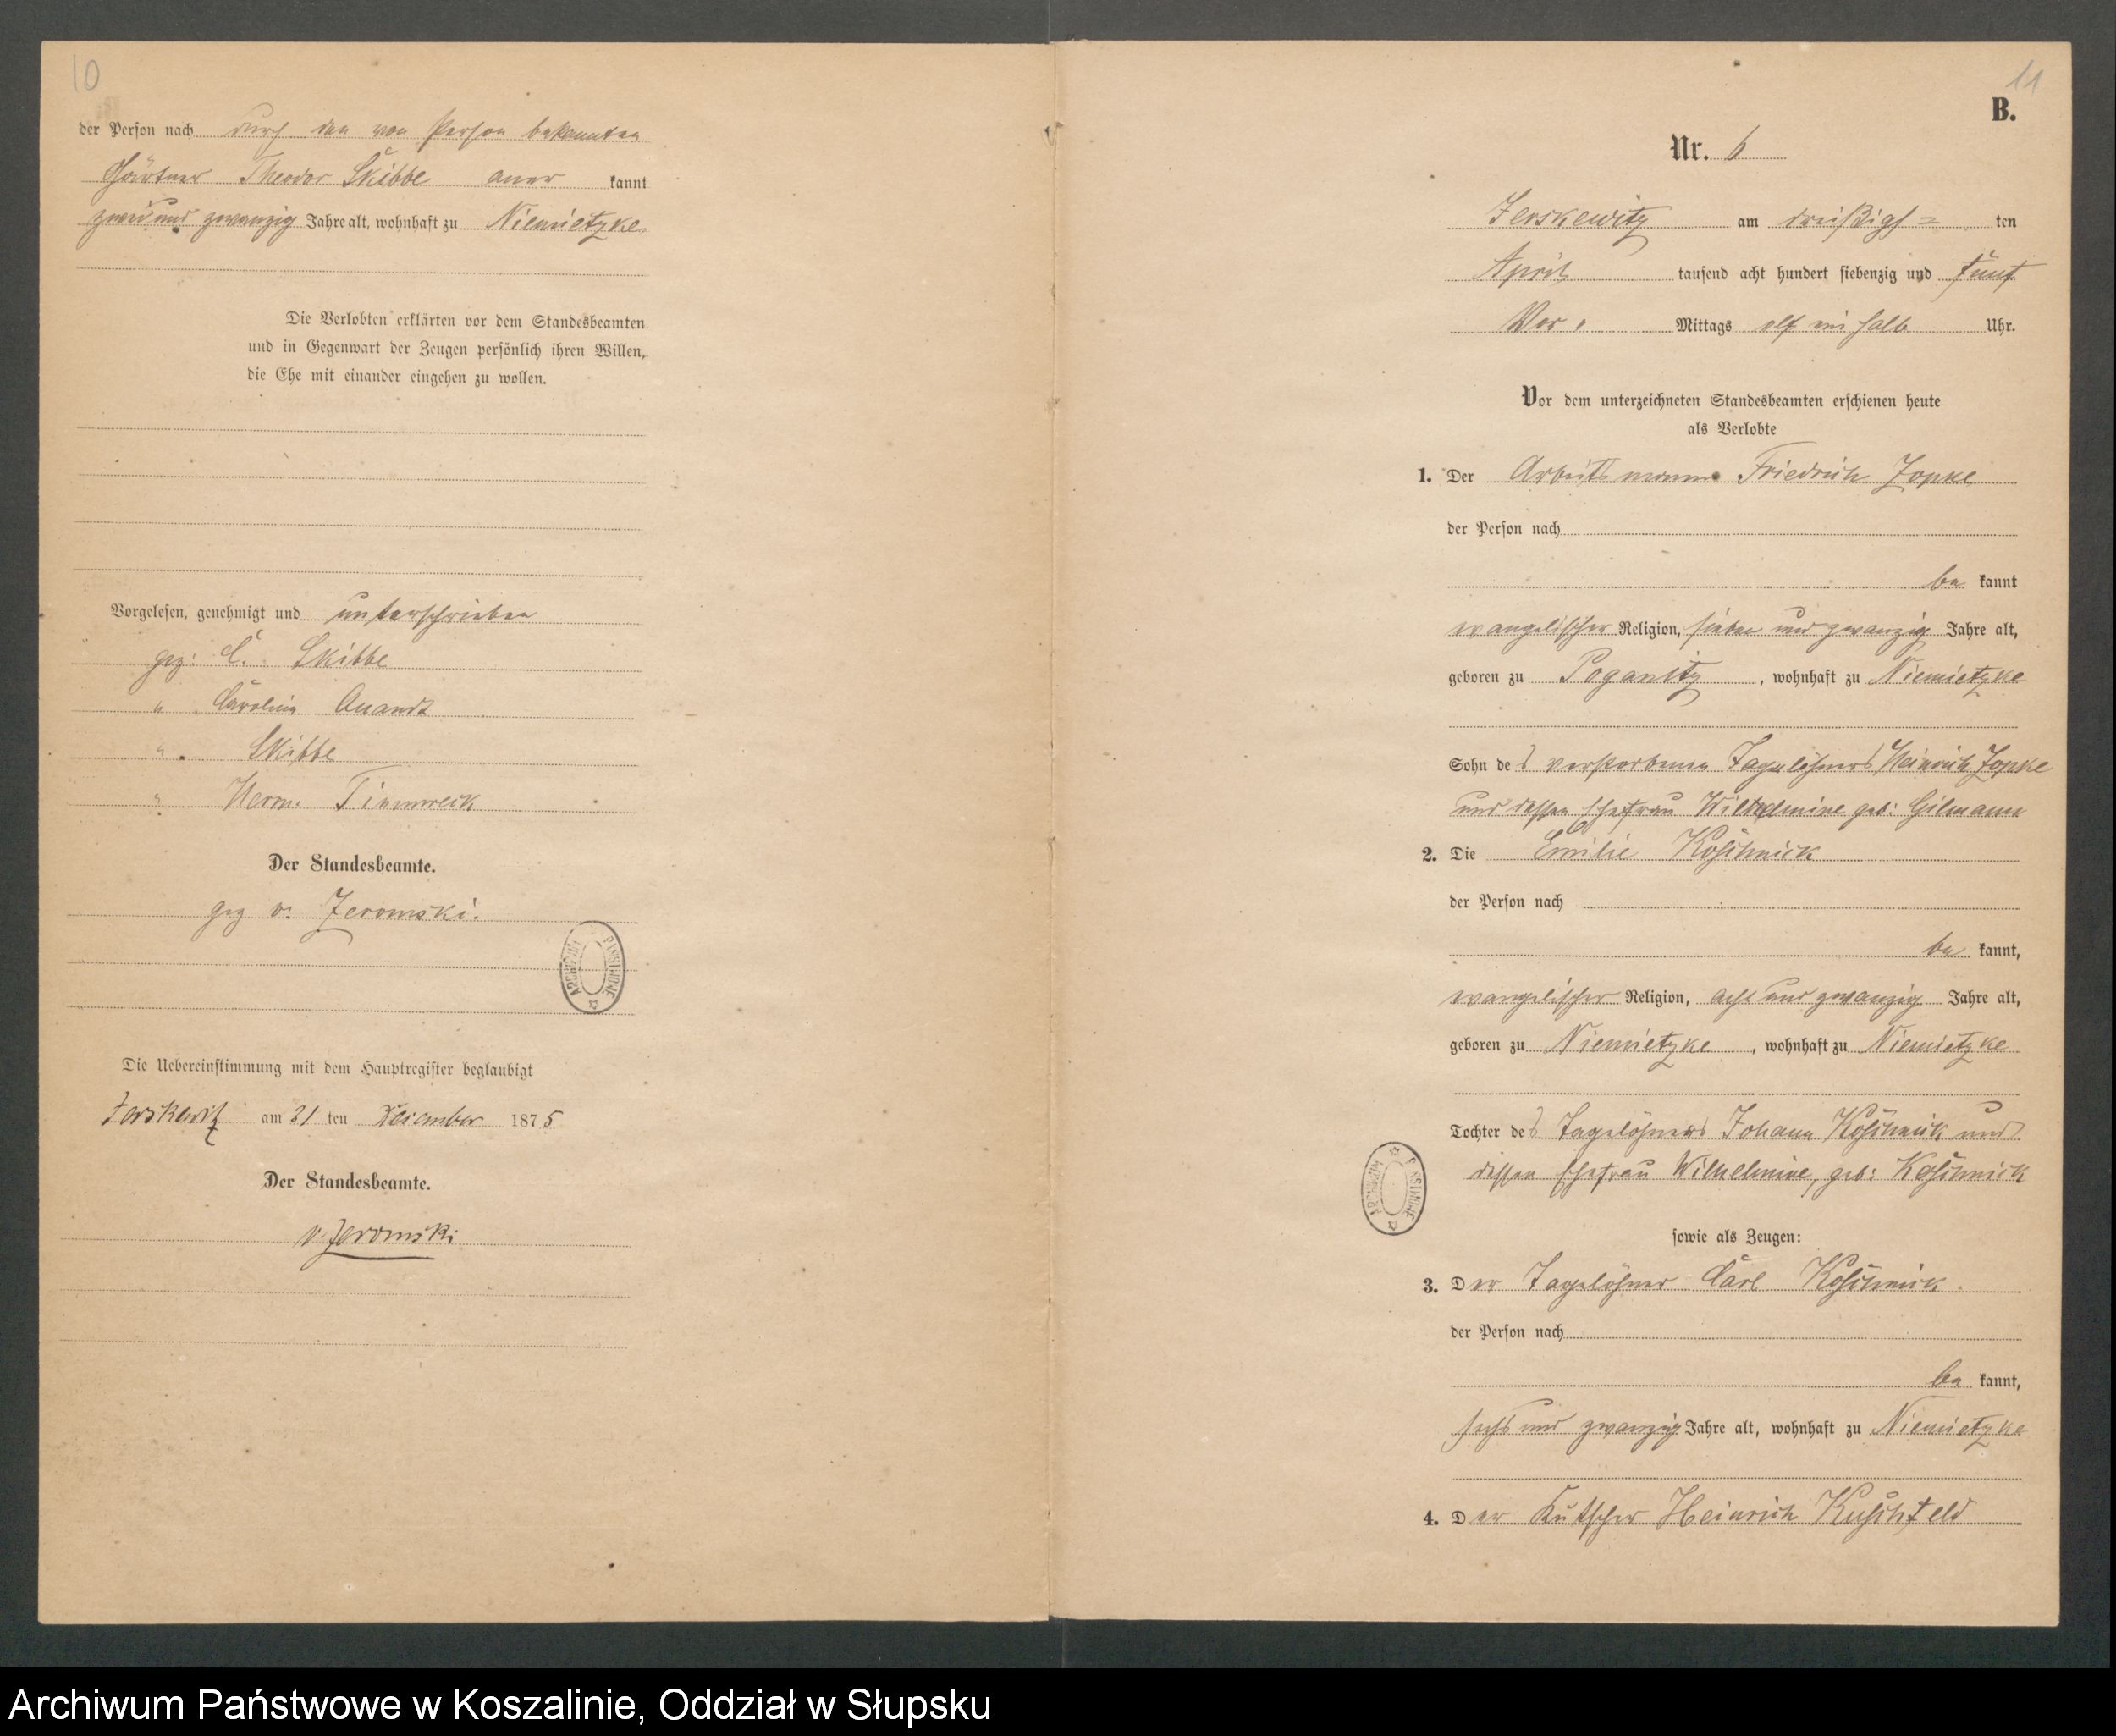 10
der Person nach durch den von Person bekannten
Gärtner Theodor Skibbe aner kannt
zwei und zwanzig Jahre alt, wohnhaft zu Niemietzke
Die Verlobten erklärten vor dem Standesbeamten
und in Gegenwart der Zeugen persönlich ihren Willen,
die Ehe mit einander eingehen zu wollen.
Vorgelesen, genehmigt und unterschrieben
gez: C. Skibbe
" Caroline Quandt
" Skibbe
" Herm. Timmreck
Der Standesbeamte.
gez v. Jeromski.
ARCHIWUM PAŃSTWOWE
Die Uebereinstimmung mit dem Hauptregister beglaubigt
Jerskewitz am 31 ten Dezember 1875
Der Standesbeamte.
v. Jeromski
11
B.
Nr. 6
Jerskewitz am dreißigs= ten
April tausend acht hundert siebenzig und fünf
Vor - Mittags elf ein halb Uhr.
Vor dem unterzeichneten Standesbeamten erschienen heute
als Verlobte
1. Der Arbeitsmann Friedrich Jopke
der Person nach
be kannt
evangelischer Religion, sieben und zwanzig Jahre alt,
geboren zu Poganitz, wohnhaft zu Niemietzke
Sohn des verstorbenen Tagelöhners Heinrich Jopke
und dessen Ehefrau Wilhelmine geb: Gilmann
2. Die Emilie Koschnick
der Person nach
be kannt,
evangelischer Religion, acht und zwanzig Jahre alt,
geboren zu Niemietzke, wohnhaft zu Niemietzke
Tochter des Tagelöhners Johann Koschnick und
dessen Ehefrau Wilhelmine, geb: Koschnick
ARCHIWUM PAŃSTWOWE
sowie als Zeugen:
3. Der Tagelöhner Carl Koschnick.
der Person nach
be kannt,
sechs und zwanzig Jahre alt, wohnhaft zu Niemietzke
4. Der Kutscher Heinrich Kuschfeld
Archiwum Państwowe w Koszalinie, Oddział w Słupsku